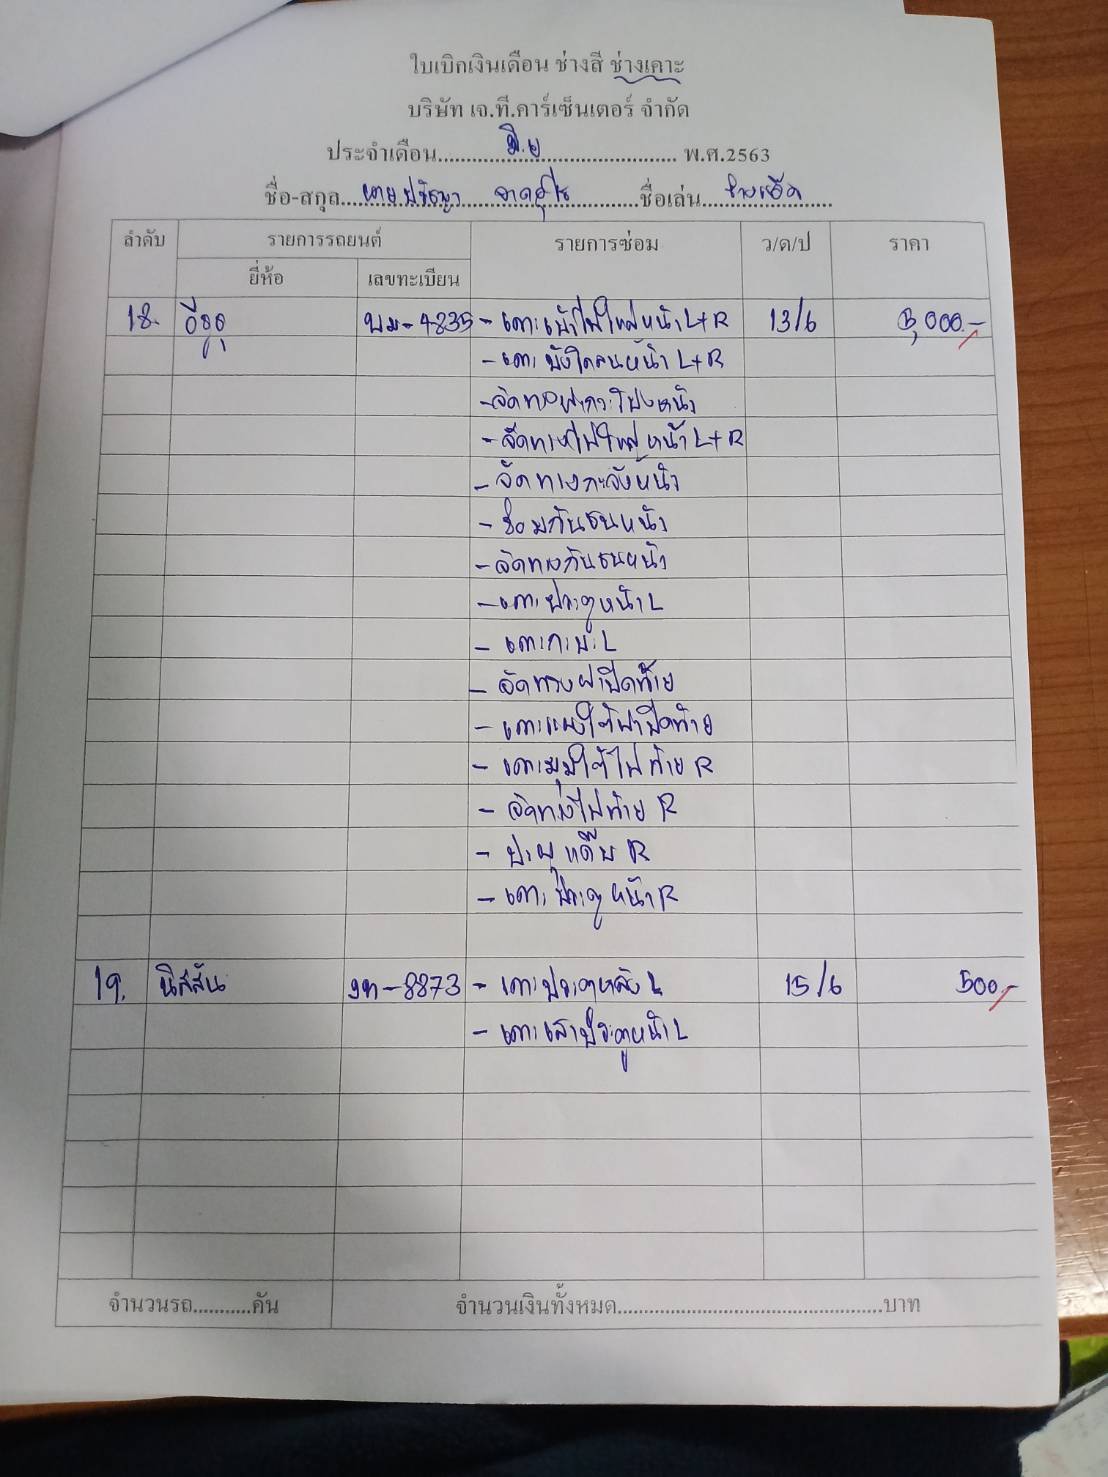 ใบเบิกเงินเดือน ช่างสี ช่างเคาะ
บริษัท เจ.ที.คาร์เซ็นเตอร์ จำกัด
ประจำเดือน....มิ.ย.... พ.ศ.2563
ชื่อ-สกุล....นายปรัชญา....ชื่อเล่น....ช่าง....
ลำดับ รายการรถยนต์ รายการซ่อม ว/ด/ป ราคา
ยี่ห้อ เลขทะเบียน
18. อีซูซุ บม-4835 - เคาะเบ้าไฟใหญ่หน้า L+R 13/6 3,000.-
- เคาะบังโคลนหน้า L+R
- จัดทรงฝากระโปรงหน้า
- จัดทรงไฟใหญ่หน้า L+R
- จัดทรงกระจังหน้า
- ซ่อมกันชนหน้า
- จัดทรงกันชนหน้า
- เคาะประตูหน้า L
- เคาะกะบะ L
- จัดทรงฝาปิดท้าย
- เคาะแผงใต้ฝาปิดท้าย
- เคาะมุมใต้ไฟท้าย R
- จัดทรงไฟท้าย R
- ประตูแค็บ R
- เคาะประตูหน้า R
19. นิสสัน งท-8873 - เคาะประตูหลัง L 15/6 500.-
- เคาะเสาประตูหน้า L
จำนวนรถ...........คัน จำนวนเงินทั้งหมด.............................................บาท